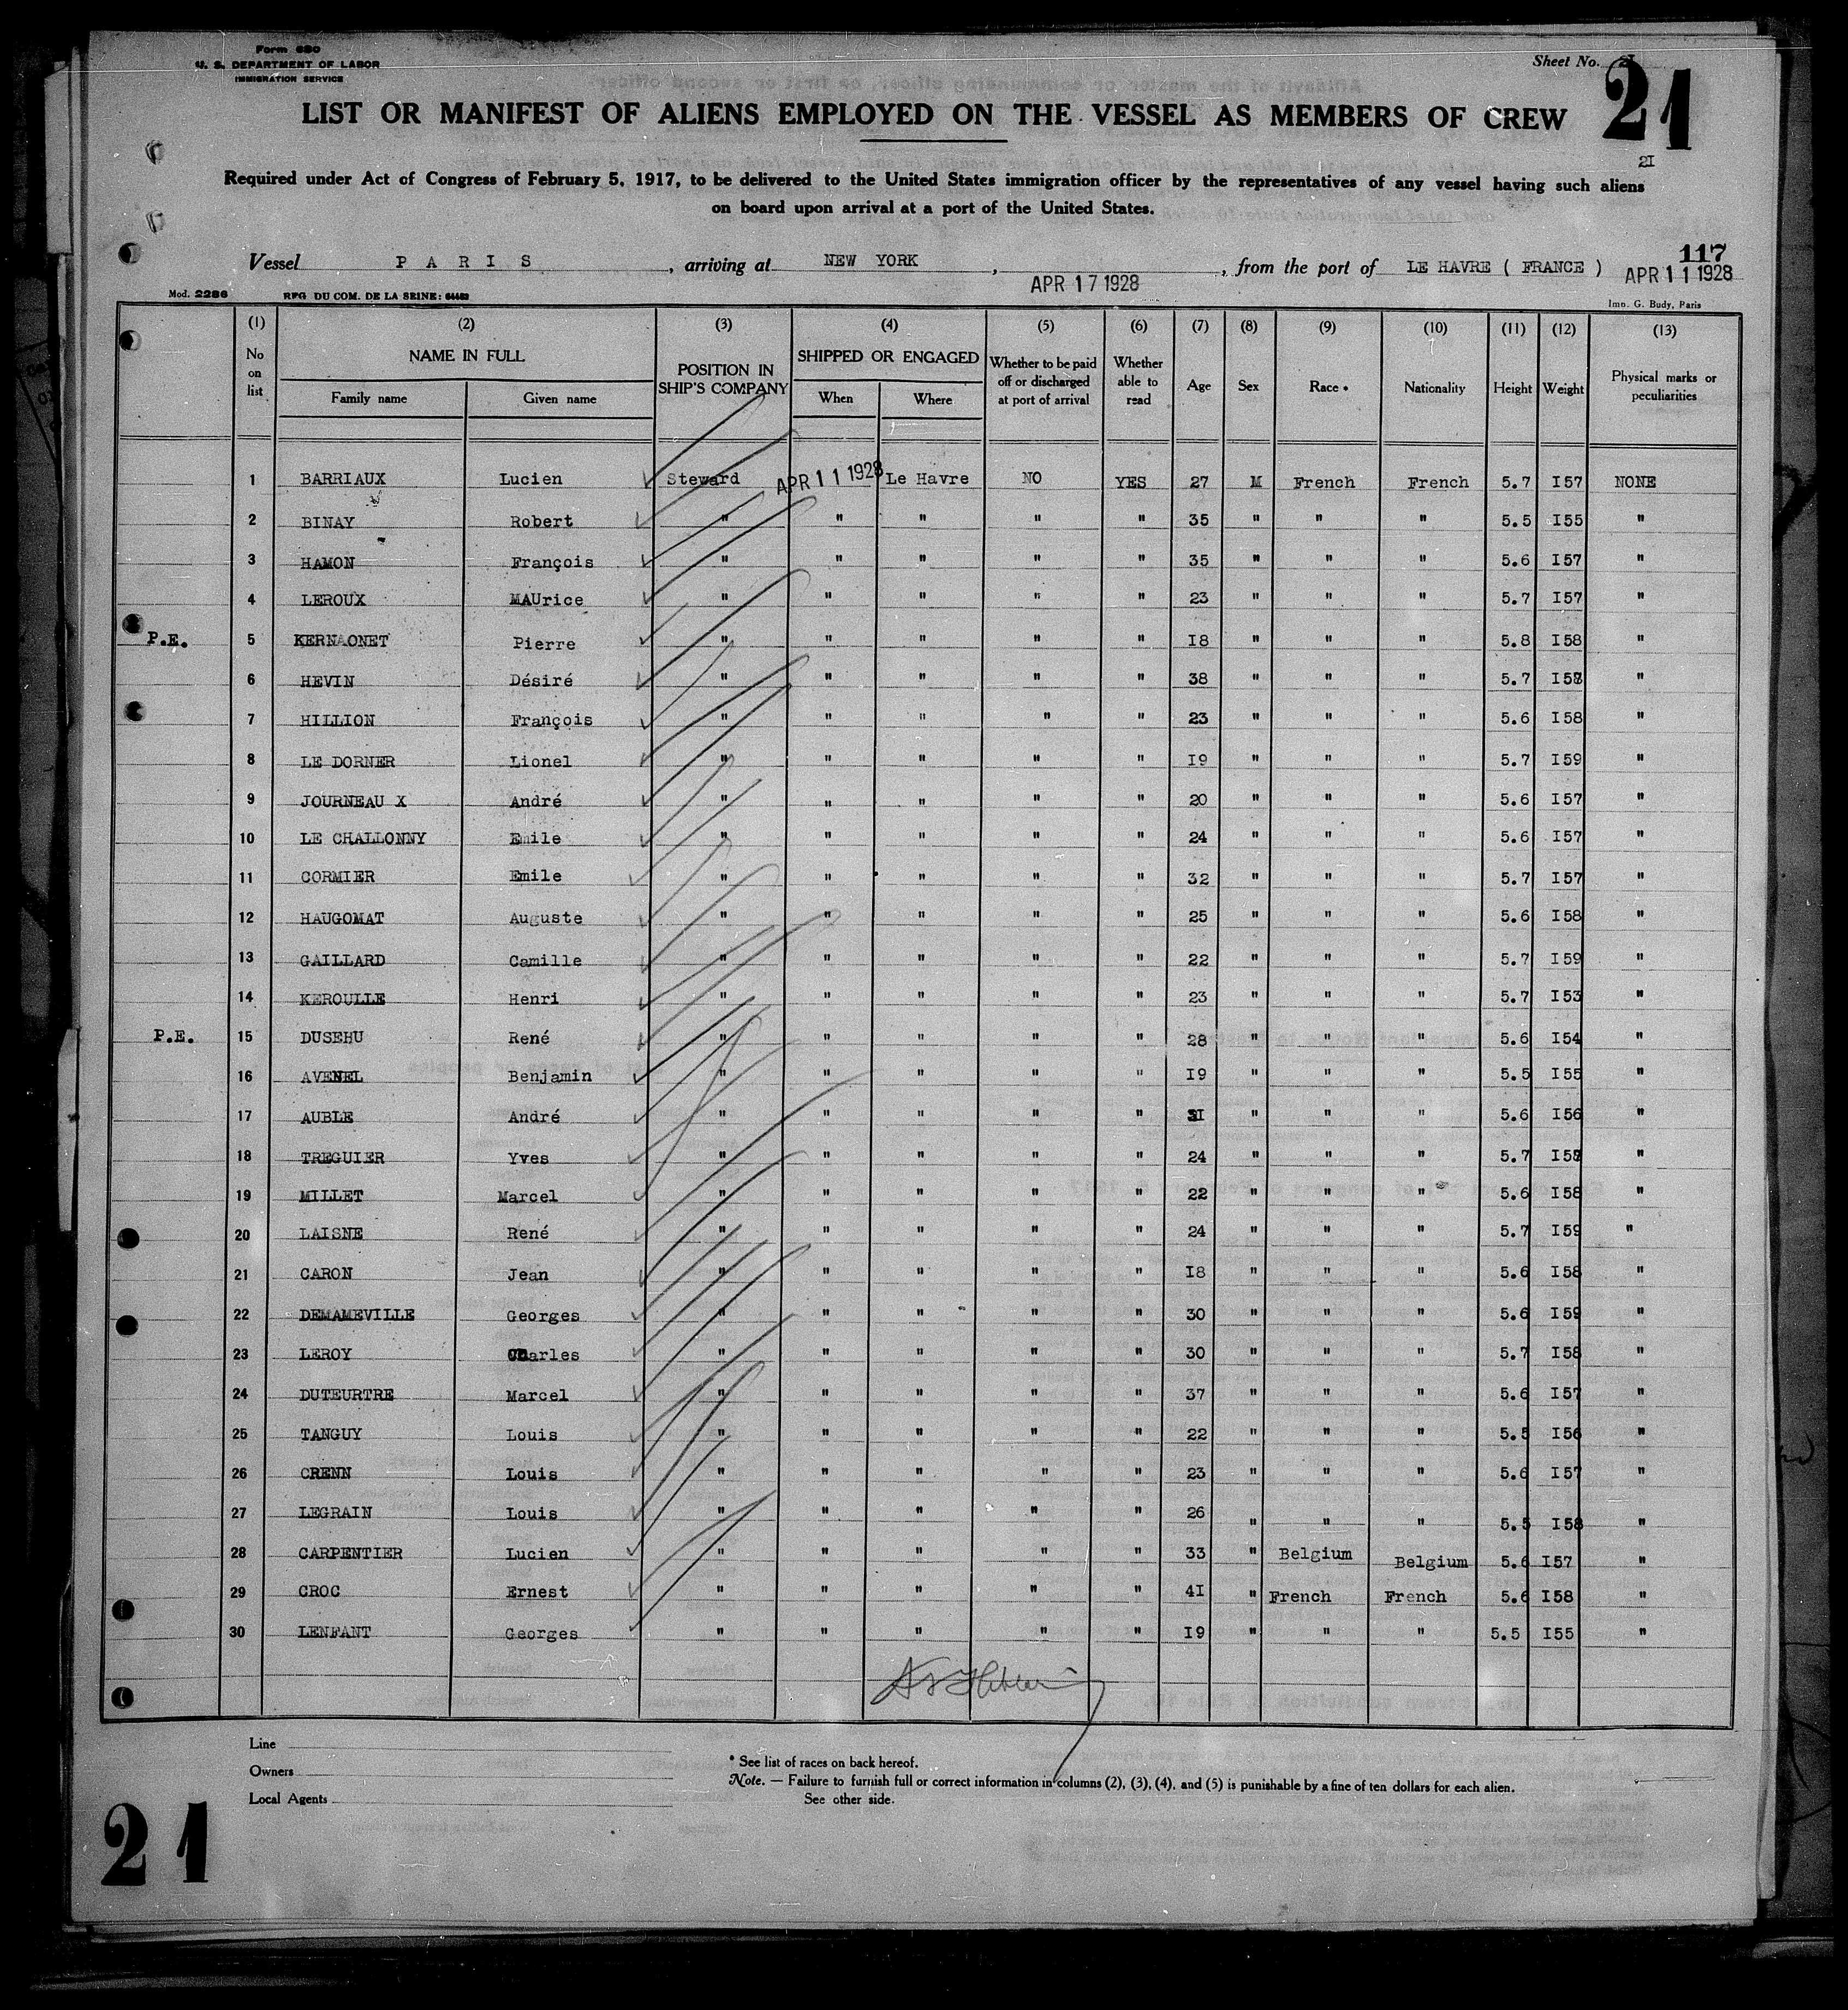 Form 680
U. S. DEPARTMENT OF LABOR
IMMIGRATION SERVICE
Sheet No. 21
21
LIST OR MANIFEST OF ALIENS EMPLOYED ON THE VESSEL AS MEMBERS OF CREW
21
Required under Act of Congress of February 5, 1917, to be delivered to the United States immigration officer by the representatives of any vessel having such aliens
on board upon arrival at a port of the United States.
117
Vessel PARIS, arriving at NEW YORK, APR 17 1928, from the port of LE HAVRE ( FRANCE ) APR 11 1928
Mod. 2286 RFG DU COM. DE LA SEINE: 64483 Imp. G. Budy, Paris
(1) (2) (3) (4) (5) (6) (7) (8) (9) (10) (11) (12) (13)
No on list NAME IN FULL POSITION IN SHIP'S COMPANY SHIPPED OR ENGAGED Whether to be paid off or discharged at port of arrival Whether able to read Age Sex Race * Nationality Height Weight Physical marks or peculiarities
Family name Given name When Where
1 BARRIAUX Lucien Steward APR 11 1928 Le Havre NO YES 27 M French French 5.7 I57 NONE
2 BINAY Robert " " " " " 35 " " " 5.5 I55 "
3 HAMON François " " " " " 35 " " " 5.6 I57 "
4 LEROUX MAUrice " " " " " 23 " " " 5.7 I57 "
P.E. 5 KERNAONET Pierre " " " " " I8 " " " 5.8 I58 "
6 HEVIN Désiré " " " " " 38 " " " 5.7 "
7 HILLION François " " " " " 23 " " " 5.6 I58 "
8 LE DORNER Lionel " " " " " I9 " " " 5.7 I59 "
9 JOURNEAU X André " " " " " 20 " " " 5.6 I57 "
10 LE CHALLONNY Emile " " " " " 24 " " " 5.6 I57 "
11 CORMIER Emile " " " " " 32 " " " 5.7 I57 "
12 HAUGOMAT Auguste " " " " " 25 " " " 5.6 I58 "
13 GAILLARD Camille " " " " " 22 " " " 5.7 I59 "
14 KEROULLE Henri " " " " " 23 " " " 5.7 I53 "
P.E. 15 DUSEHU René " " " " " 28 " " " 5.6 I54 "
16 AVENEL Benjamin " " " " " I9 " " " 5.5 I55 "
17 AUBLE André " " " " " " " " 5.6 I56 "
18 TREGUIER Yves " " " " " 24 " " " 5.7 "
19 MILLET Marcel " " " " " 22 " " " 5.6 I58 "
20 LAISNE René " " " " " 24 " " " 5.7 I59 "
21 CARON Jean " " " " " I8 " " " 5.6 I58 "
22 DEMAMEVILLE Georges " " " " " 30 " " " 5.6 I59 "
23 LEROY Charles " " " " " 30 " " " 5.7 I58 "
24 DUTEURTRE Marcel " " " " " 37 " " " 5.6 I57 "
25 TANGUY Louis " " " " " 22 " " " 5.5 I56 "
26 CRENN Louis " " " " " 23 " " " 5.6 I57 "
27 LEGRAIN Louis " " " " " 26 " " " 5.5 I58 "
28 CARPENTIER Lucien " " " " " 33 " Belgium Belgium 5.6 I57 "
29 CROC Ernest " " " " " 4I " French French 5.6 I58 "
30 LENFANT Georges " " " " " I9 " " " 5.5 I55 "
Line
Owners
Local Agents
* See list of races on back hereof.
Note. — Failure to furnish full or correct information in columns (2), (3), (4), and (5) is punishable by a fine of ten dollars for each alien.
See other side.
21